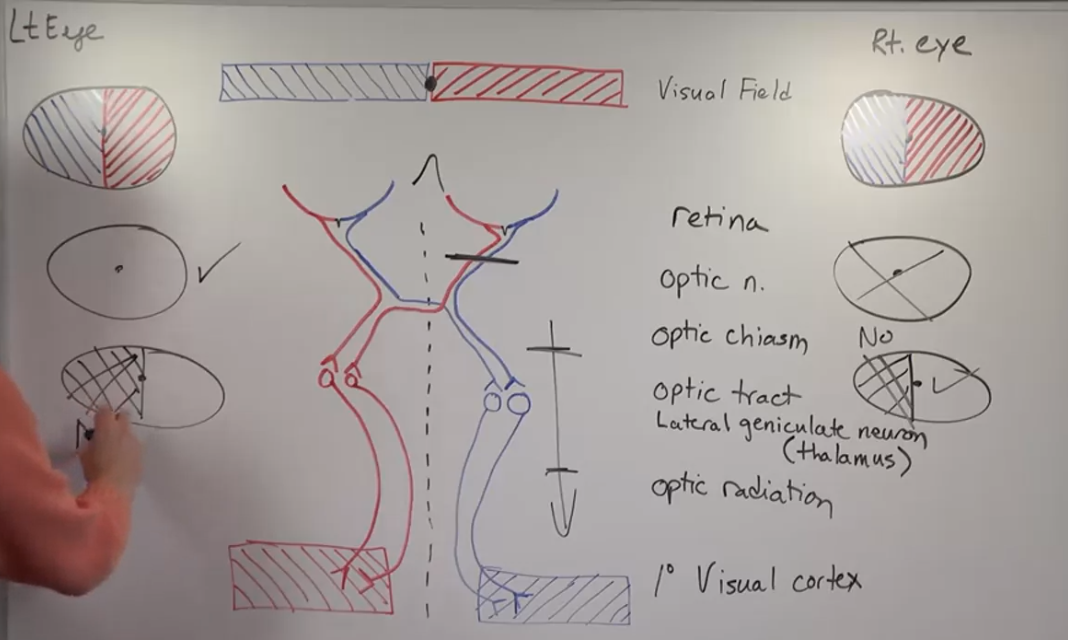 Lt Eye
Rt. eye
Visual Field
retina
optic n.
optic chiasm
No
optic tract
Lateral geniculate neuron
(thalamus)
optic radiation
1° Visual cortex